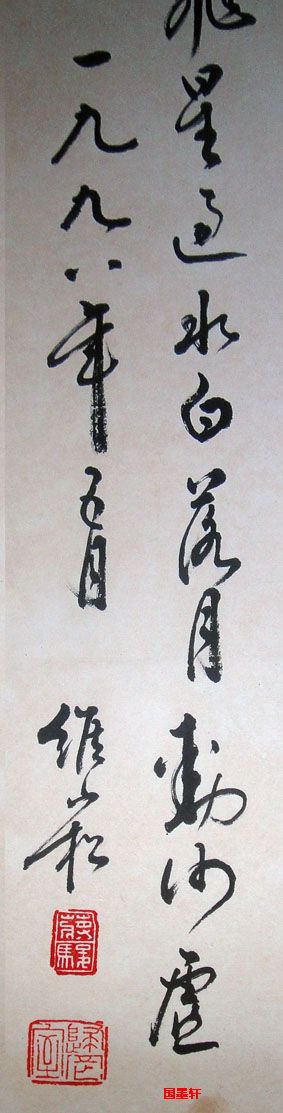 飛星過水白落月動沙虛
一九九八年五月
維崧
国墨轩